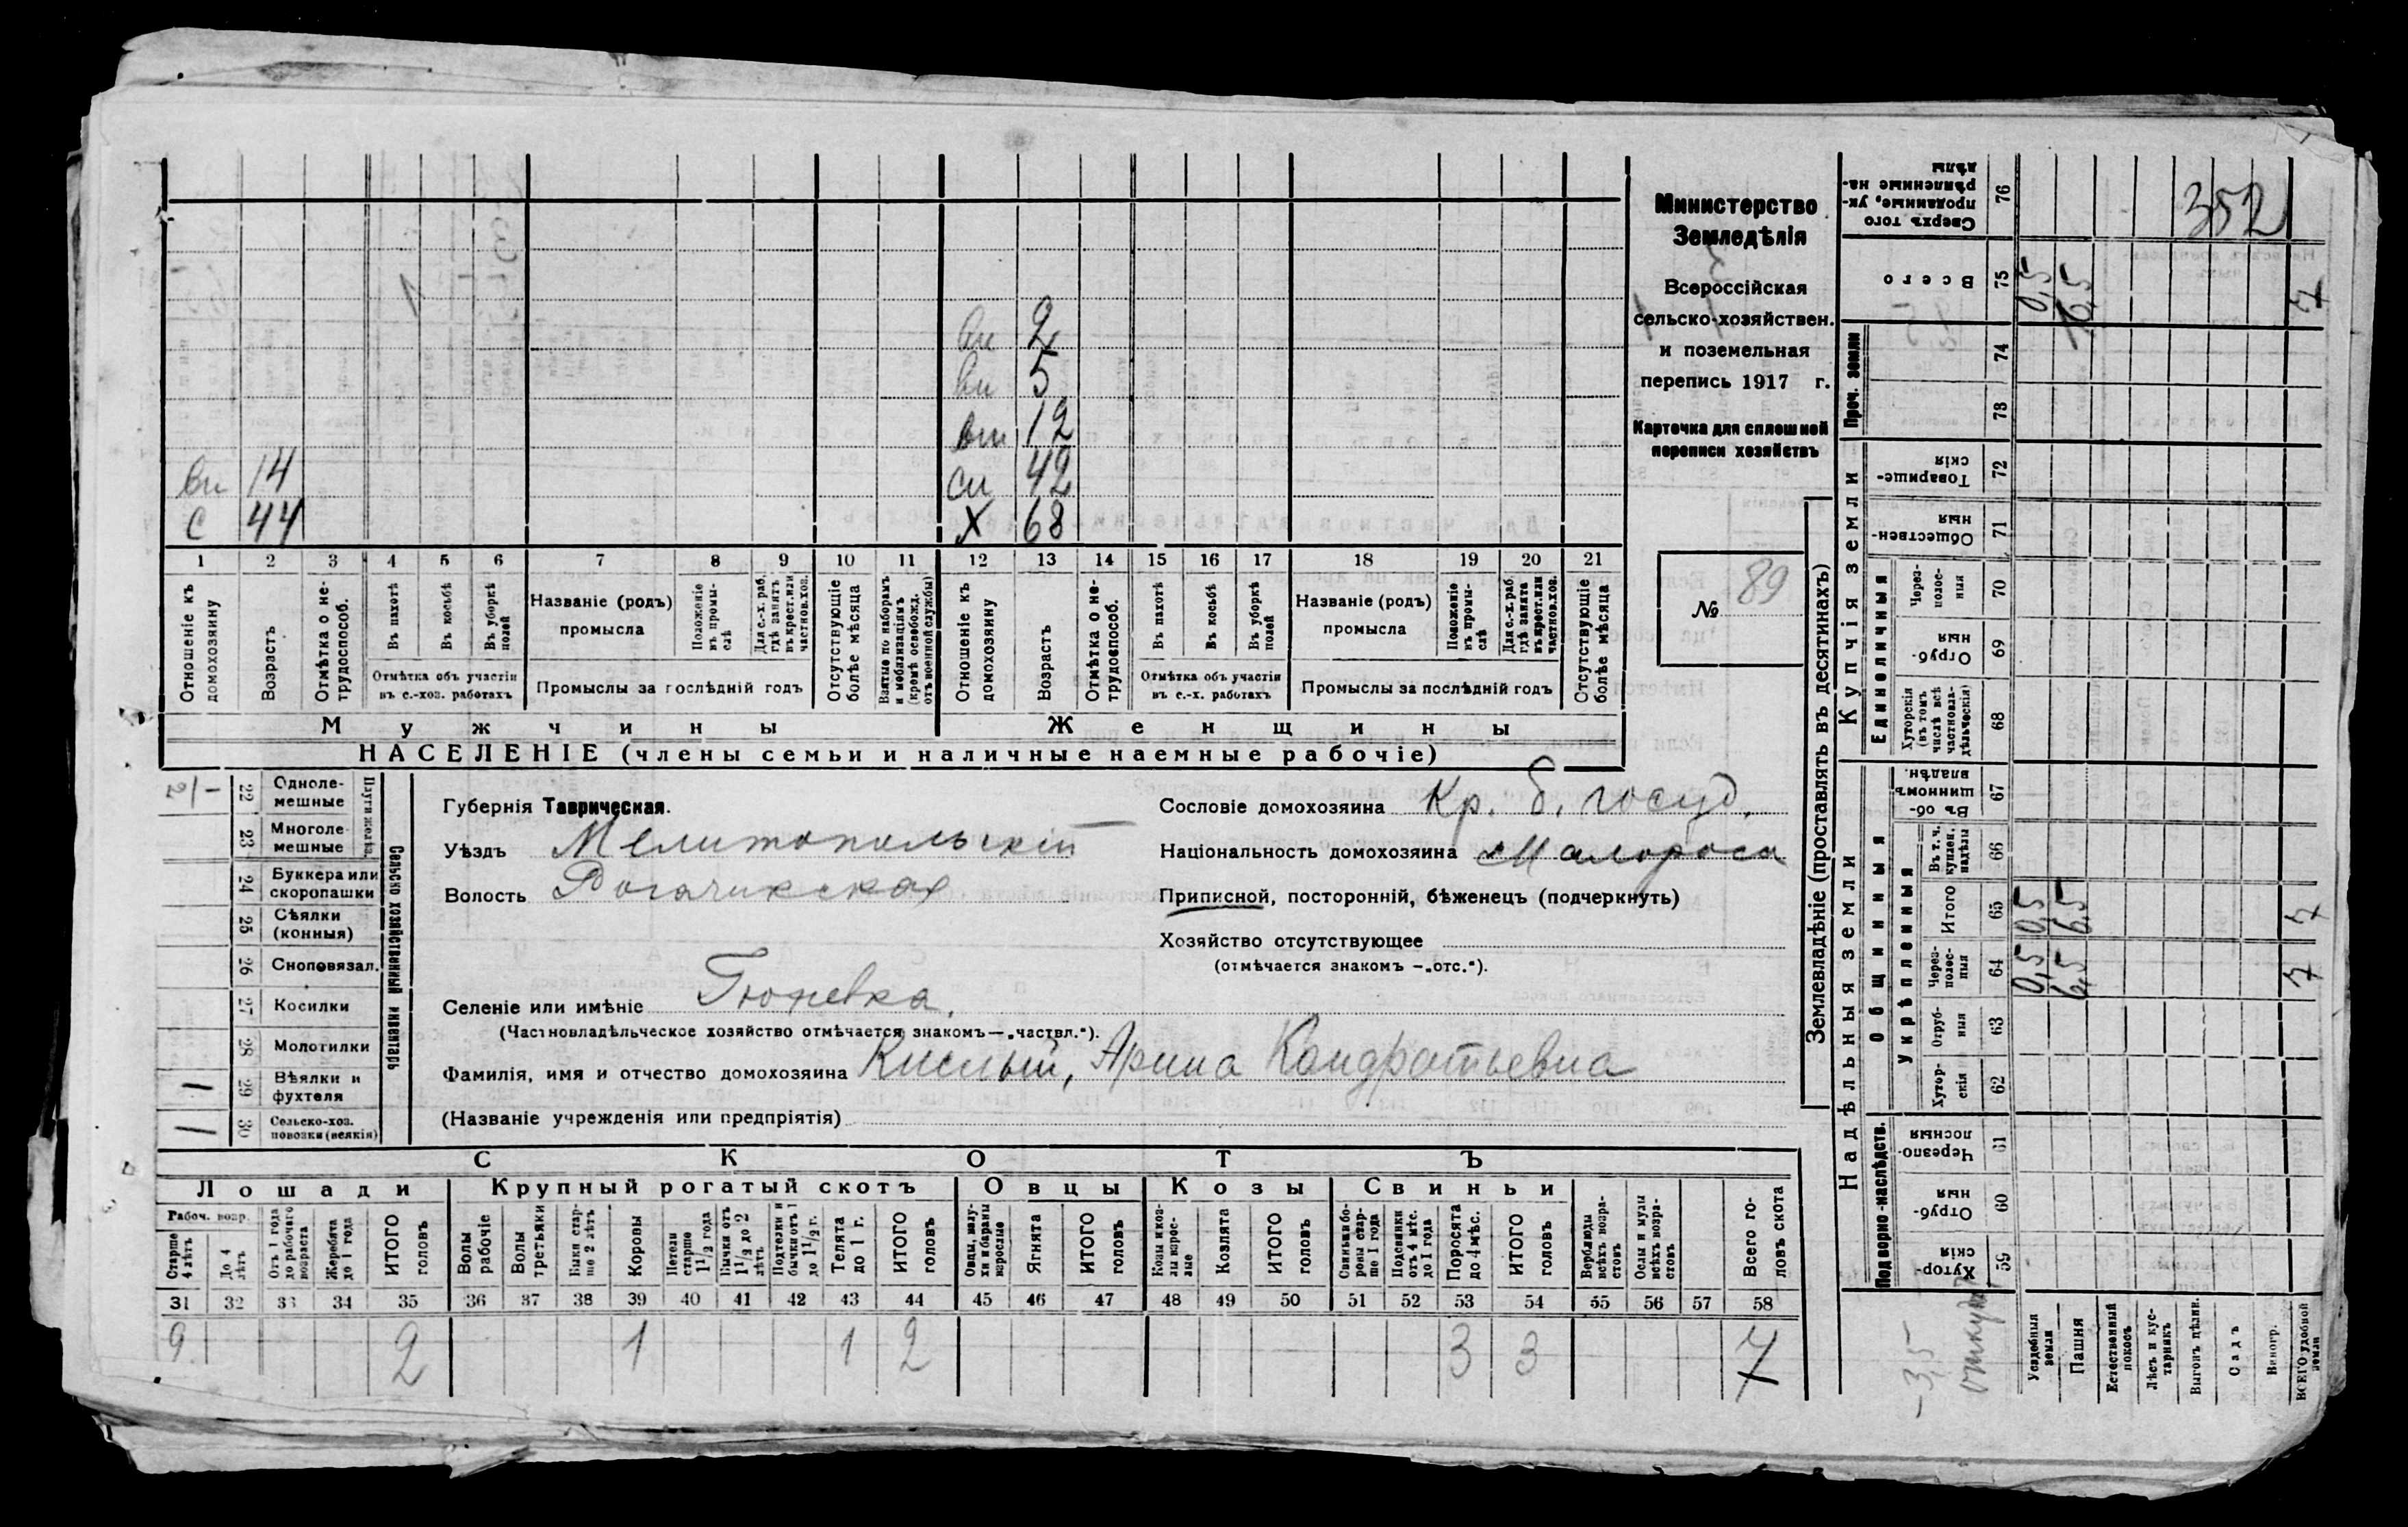 вн 2
вн 5
вн 12
вн 14 сн 42
С 44 Х 68
1 2 3 4 5 6 7 8 9 10 11 12 13 14 15 16 17 18 19 20 21
Отношеніе къ домохозяину
Возрастъ
Отмѣтка о нетрудоспособ.
Въ пахотѣ
Въ косьбѣ
Въ уборкѣ полей
Отмѣтка объ участіи въ с.-хоз. работахъ
Названіе (родъ) промысла
Положеніе въ промыслѣ
Для с.-х. раб. гдѣ занятъ въ крест. или частнов. хоз.
Промыслы за послѣдній годъ
Отсутствующіе болѣе мѣсяца
Взятые по наборамъ и мобилизаціямъ (кромѣ освобожд. отъ военной службы)
Отношеніе къ домохозяину
Возрастъ
Отмѣтка о нетрудоспособ.
Въ пахотѣ
Въ косьбѣ
Въ уборкѣ полей
Отмѣтка объ участіи въ с.-х. работахъ
Названіе (родъ) промысла
Положеніе въ промыслѣ
Для с.-х. раб. гдѣ занята въ крест. или частнов. хоз.
Промыслы за послѣдній годъ
Отсутствующіе болѣе мѣсяца
Мужчины Женщины
НАСЕЛЕНІЕ (члены семьи и наличные наемные рабочіе)
Министерство
Земледѣлія
Всероссійская
сельско-хозяйствен.
и поземельная
перепись 1917 г.
Карточка для сплошной
переписи хозяйствъ
№ 89
22 Однолемешные
23 Многолемешные
24 Буккера или скоропашки
25 Сѣялки (конныя)
26 Сноповязал.
27 Косилки
28 Молотилки
1 29 Вѣялки и фухтеля
1 30 Сельско-хоз. повозки (всякія)
Сельско хозяйственный инвентарь
Губернія Таврическая.
Уѣздъ Мелитопольскій
Волость Рогачикская
Селеніе или имѣніе Гюневка.
(Частновладѣльческое хозяйство отмѣчается знакомъ—„частвл.“).
Фамилія, имя и отчество домохозяина Кислый, Арина Кондратьевна
(Названіе учрежденія или предпріятія)
Сословіе домохозяина Кр. б. госуд.
Національность домохозяина Малоросы
Приписной, посторонній, бѣженецъ (подчеркнуть)
Хозяйство отсутствующее
(отмѣчается знакомъ —„отс.“).
СКОТЪ
Лошади Крупный рогатый скотъ Овцы Козы Свиньи
Рабоч. возр.
Старше 4 лѣтъ
До 4 лѣтъ
Отъ 1 года до рабочаго возраста
Жеребята до 1 года
ИТОГО головъ
Волы рабочіе
Волы третьяки
Быки старше 2 лѣтъ
Коровы
Нетели старше 1 1/2 года
Бычки отъ 1 1/2 до 2 лѣтъ
Подтелки и бычки отъ 1 до 1 1/2 г.
Телята до 1 г.
ИТОГО головъ
Овцы, валухи и бараны взрослые
Ягнята
ИТОГО головъ
Козы и козлы взрослые
Козлята
ИТОГО головъ
Свиньи и боровы старше 1 года
Подсвинки отъ 4 мѣс. до 1 года
Поросята до 4 мѣс.
ИТОГО головъ
Верблюды всѣхъ возрастовъ
Ослы и мулы всѣхъ возрастовъ
Всего головъ скота
31 32 33 34 35 36 37 38 39 40 41 42 43 44 45 46 47 48 49 50 51 52 53 54 55 56 57 58
2 2 1 1 2 3 3 7
Землевладѣніе (проставлять въ десятинахъ)
Надѣльныя земли Купчія земли Проч. земли
Подворно-наслѣдств. Общинныя Единоличныя
Укрѣпленныя
Хуторскія 59
Отрубныя 60
Черезполосныя 61
Хуторскія 62
Отрубныя 63
Черезполосныя 64 0,5 6,5 7
Итого 65 0,5 6,5 7
Въ т. ч. куплен. надѣлы 66
Въ общинномъ владѣн. 67
Хуторскія (въ томъ числѣ всѣ частновладѣльческія) 68
Отрубныя 69
Черезполосныя 70
Общественныя 71
Товарищескія 72
73
74
Всего 75 0,5 6,5 7
Сверхъ того проданные, укрѣпленные надѣлы 76
352
Усадебныя земли
Пашня
Естественный покосъ
Лѣсъ и кустарникъ
Выгонъ цѣлин.
Садъ
Виногр.
ВСЕГО удобной земли
-3,5